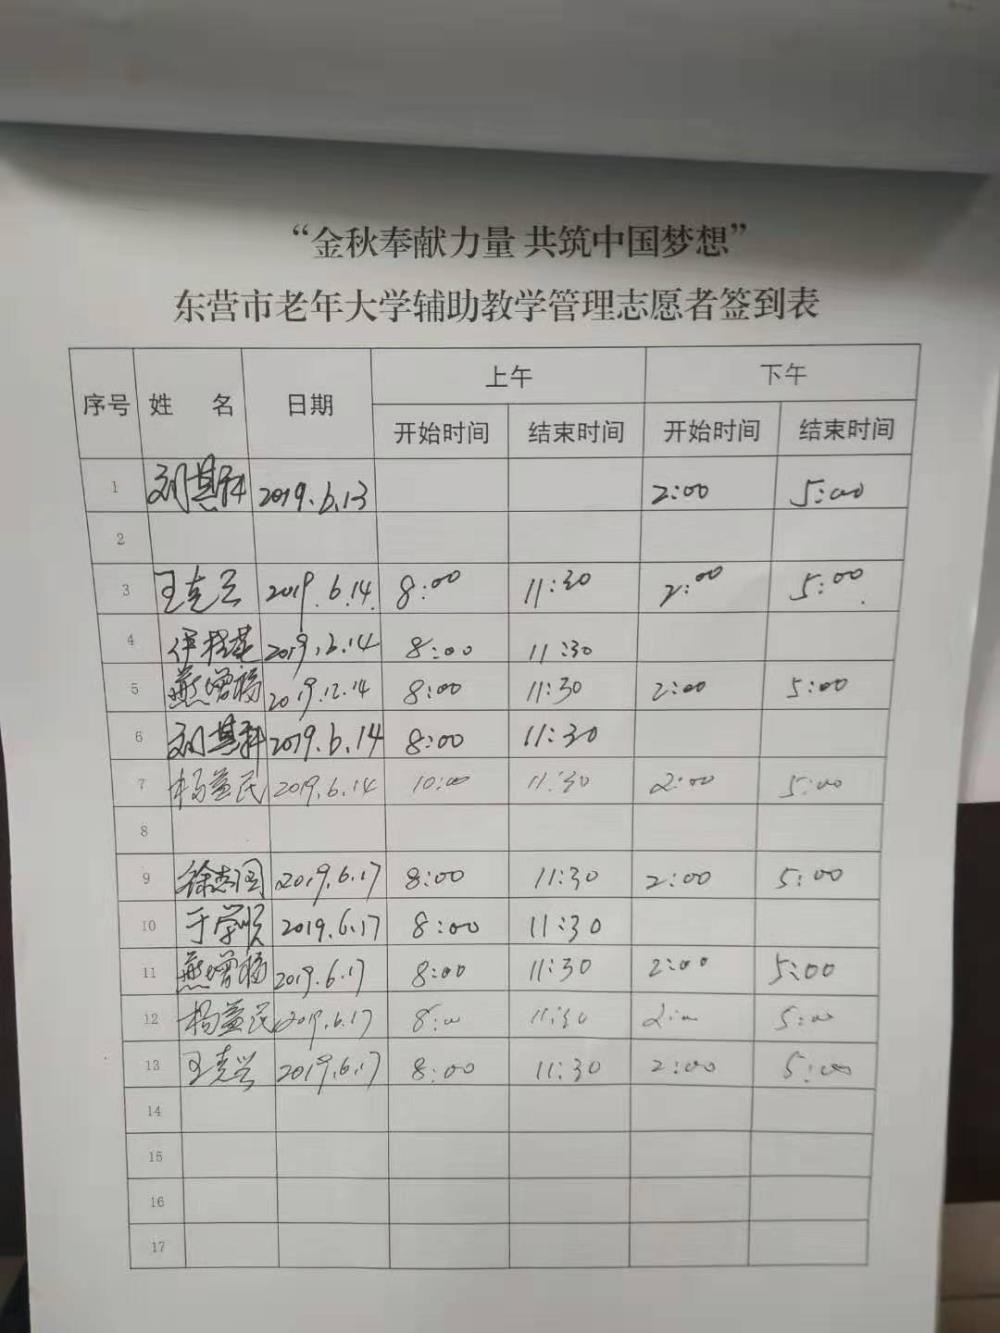 “金秋奉献力量 共筑中国梦想”
东营市老年大学辅助教学管理志愿者签到表
序号 姓 名 日期 上午 下午
开始时间 结束时间 开始时间 结束时间
1 刘其科 2019.6.13 2:00 5:00
2
3 王克兰 2019.6.14 8:00 11:30 2:00 5:00
4 2019.6.14 8:00 11:30
5 燕增福 2019.12.14 8:00 11:30 2:00 5:00
6 刘其科 2019.6.14 8:00 11:30
7 杨益民 2019.6.14 10:00 11:30 2:00 5:00
8
9 徐志国 2019.6.17 8:00 11:30 2:00 5:00
10 于学顺 2019.6.17 8:00 11:30
11 燕增福 2019.6.17 8:00 11:30 2:00 5:00
12 杨益民 2019.6.17 8:00 11:30 2:00 5:00
13 2019.6.17 8:00 11:30 2:00 5:00
14
15
16
17